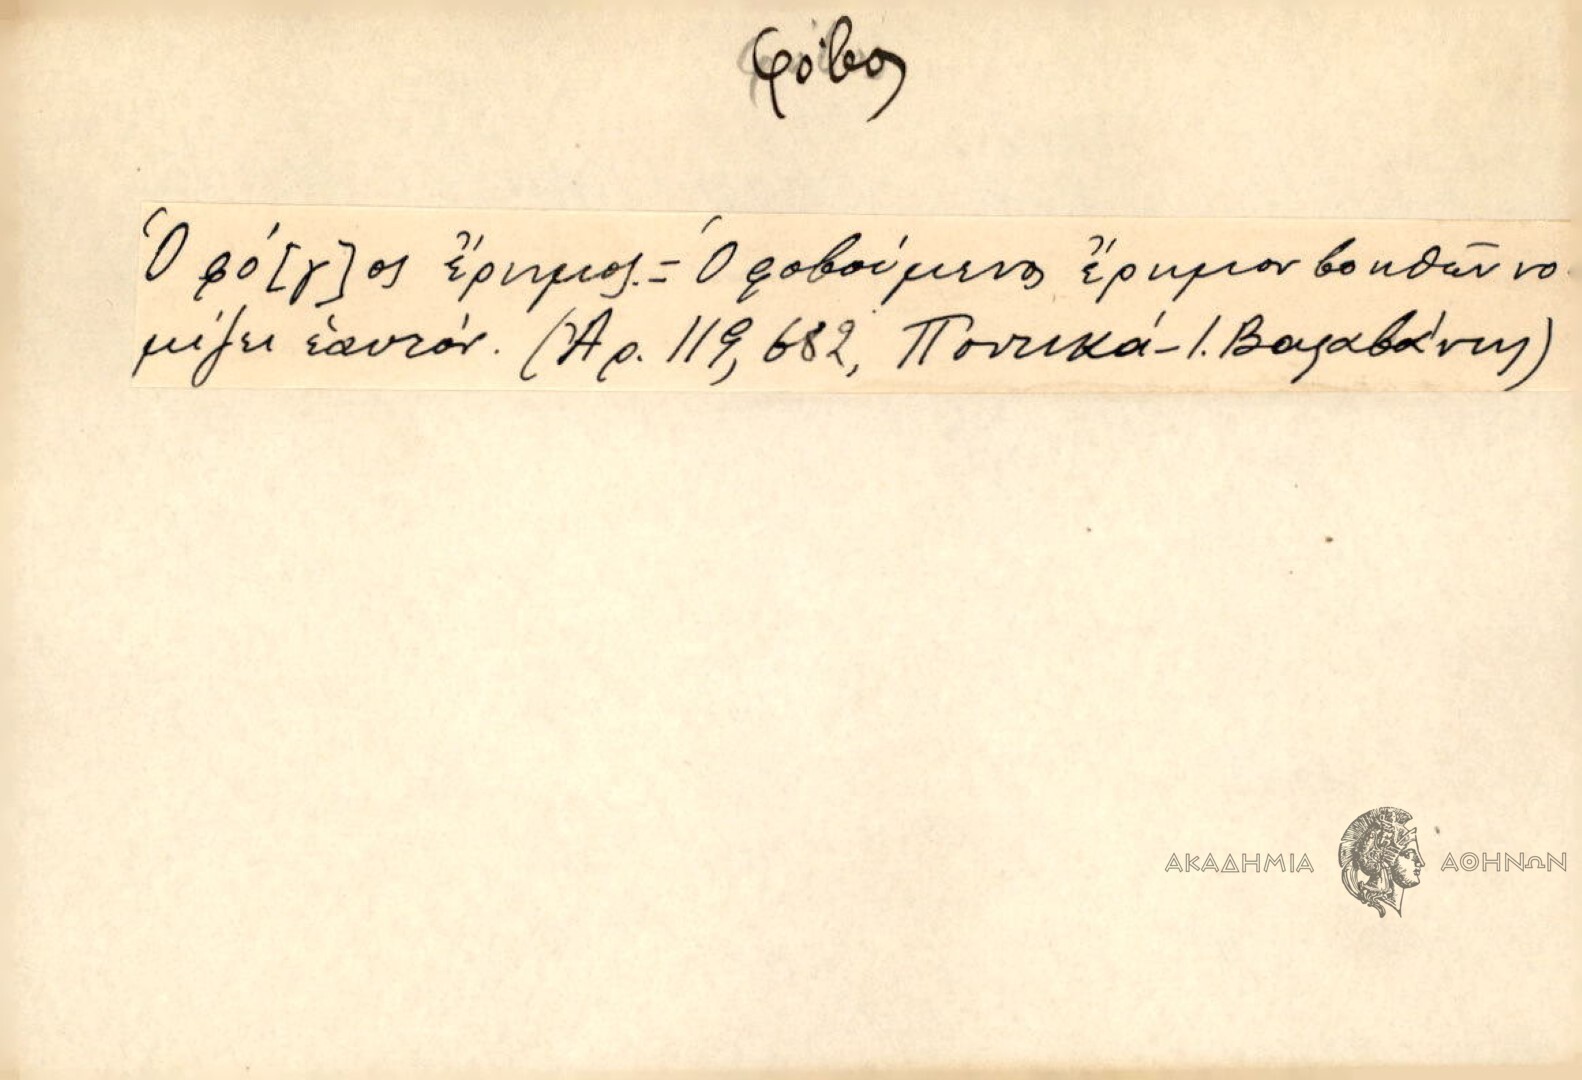 φόβος
Ὁ φό[γ]ος ἔρημος. = Ὁ φοβούμενος ἔρημον βοηθῶν νο-
μίζει ἑαυτόν. (Ἀρ. 119, 682, Ποντικά - Ι. Βαλαβάνης)
ΑΚΑΔΗΜΙΑ ΑΘΗΝΩΝ